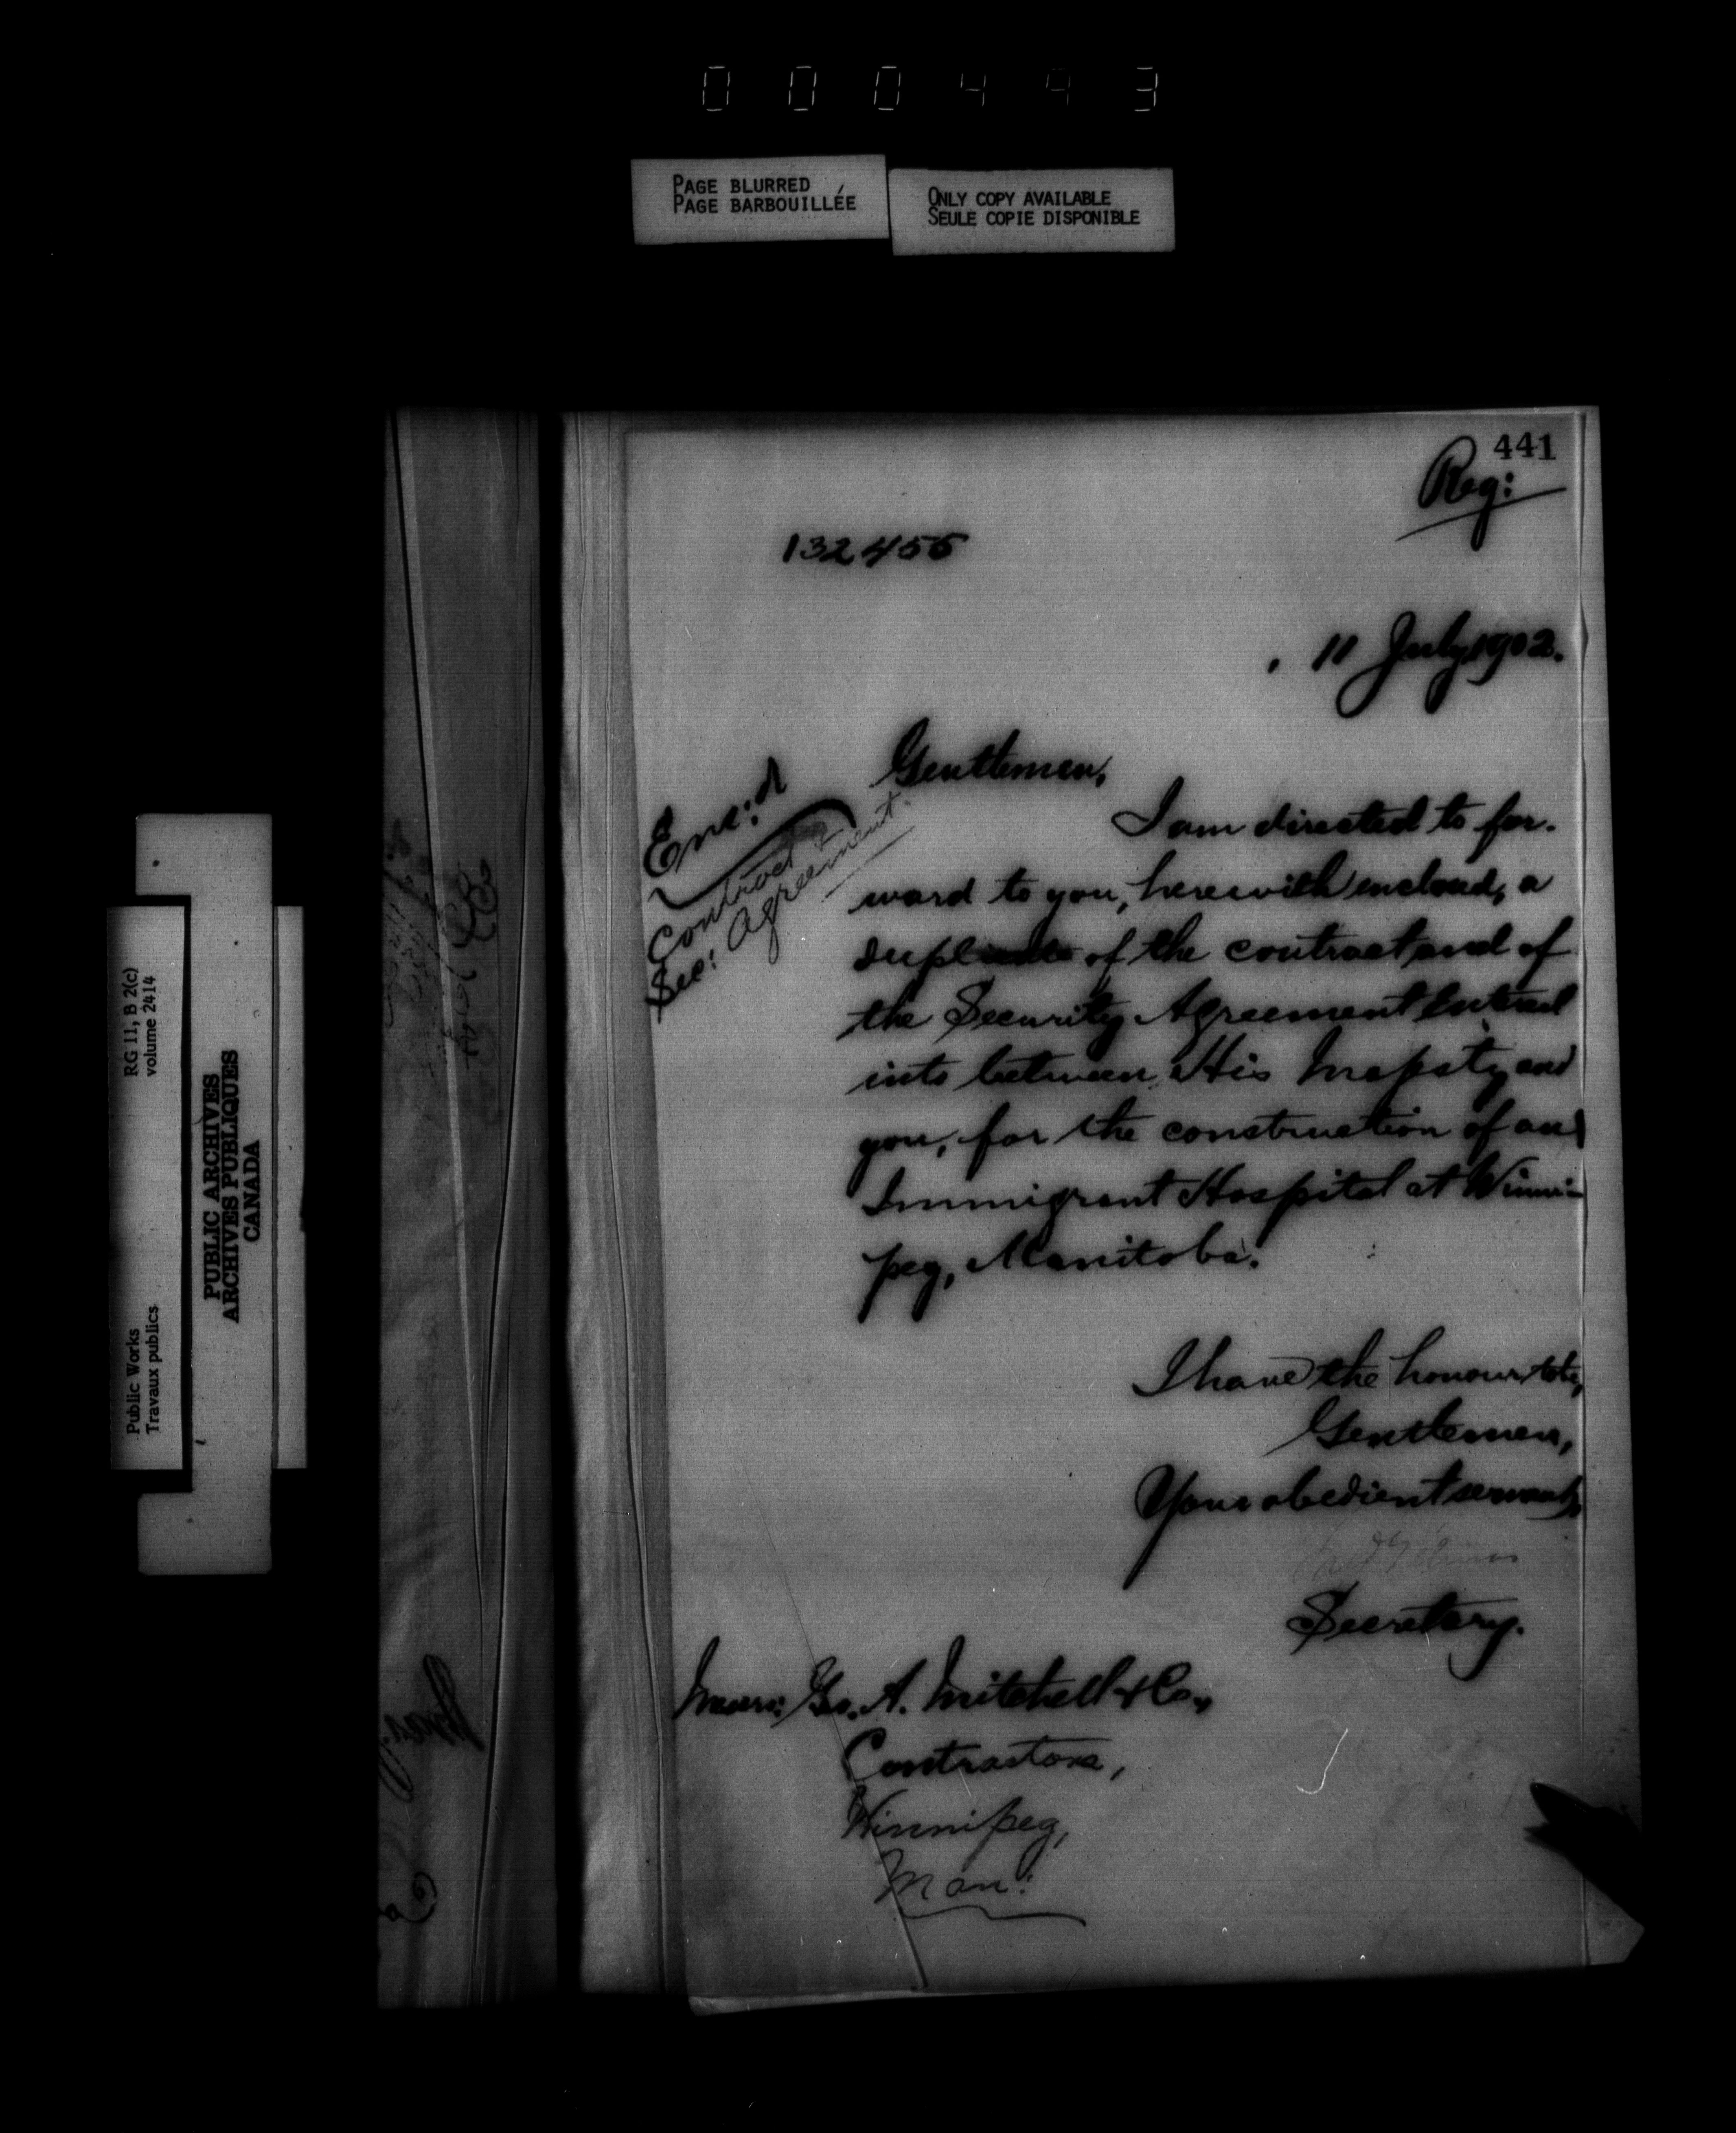 000443
PAGE BLURRED
PAGE BARBOUILLÉE
ONLY COPY AVAILABLE
SEULE COPIE DISPONIBLE
441
Reg:
132455
11 July, 1902.
Gentlemen,
Enc:d
Contract &
Sec: Agreement.
I am directed to for-
ward to you, herewith enclosed, a
duplicate of the contract and of
the Security Agreement entered
into between His Majesty and
you, for the construction of an
Immigrant Hospital at Winni-
peg, Manitoba.
I have the honour to be,
Gentlemen,
Your obedient servant,
Secretary.
Messrs: Go. A. Mitchell & Co.,
Contractors,
Winnipeg,
Man:
RG 11, B 2(c)
volume 2414
Public Works
Travaux publics
PUBLIC ARCHIVES
ARCHIVES PUBLIQUES
CANADA